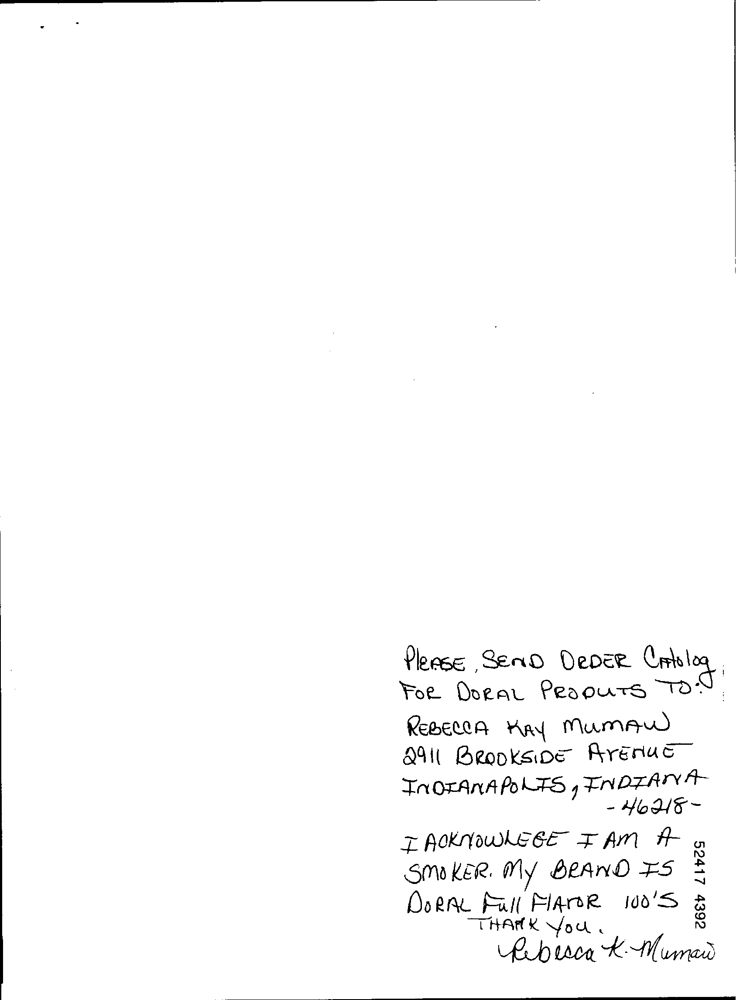 PlEASE, SEND ORDER CAtolog
FOR DORAL PRODUTS TO:
REBECCA KAY MUMAW
2911 BROOKSIDE AVENUE
INDIANAPOLIS, INDIANA
- 46218 -
I ACKNOWLEGE I AM A
SMOKER. MY BRAND IS
DORAL FUll FlAVOR 100'S
THANK YOU.
Rebecca K. Mumaw
52417 4392